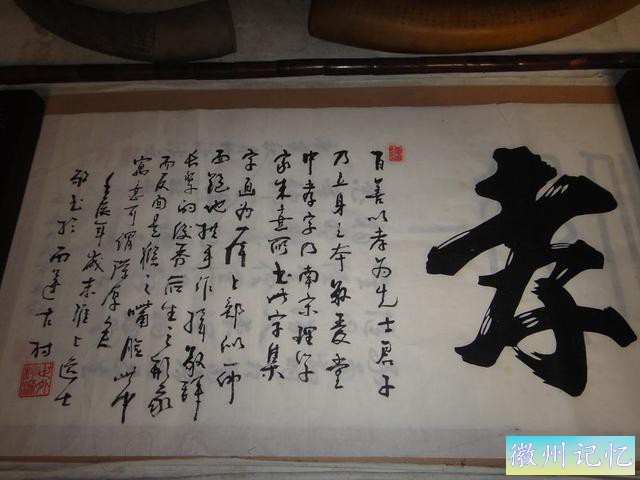 孝
百善以孝为先士君子
乃立身之本敬爱堂
中孝字乃南宋理学
家朱熹所书此字集
字画为一体上部似一
跪地拱手作揖敬
长辈的俊秀后生之形象
而反面是猴之嘴脸此中
寓意可谓深厚矣
壬辰年岁末淮上逸士
敬书于西递古村
徽州记忆